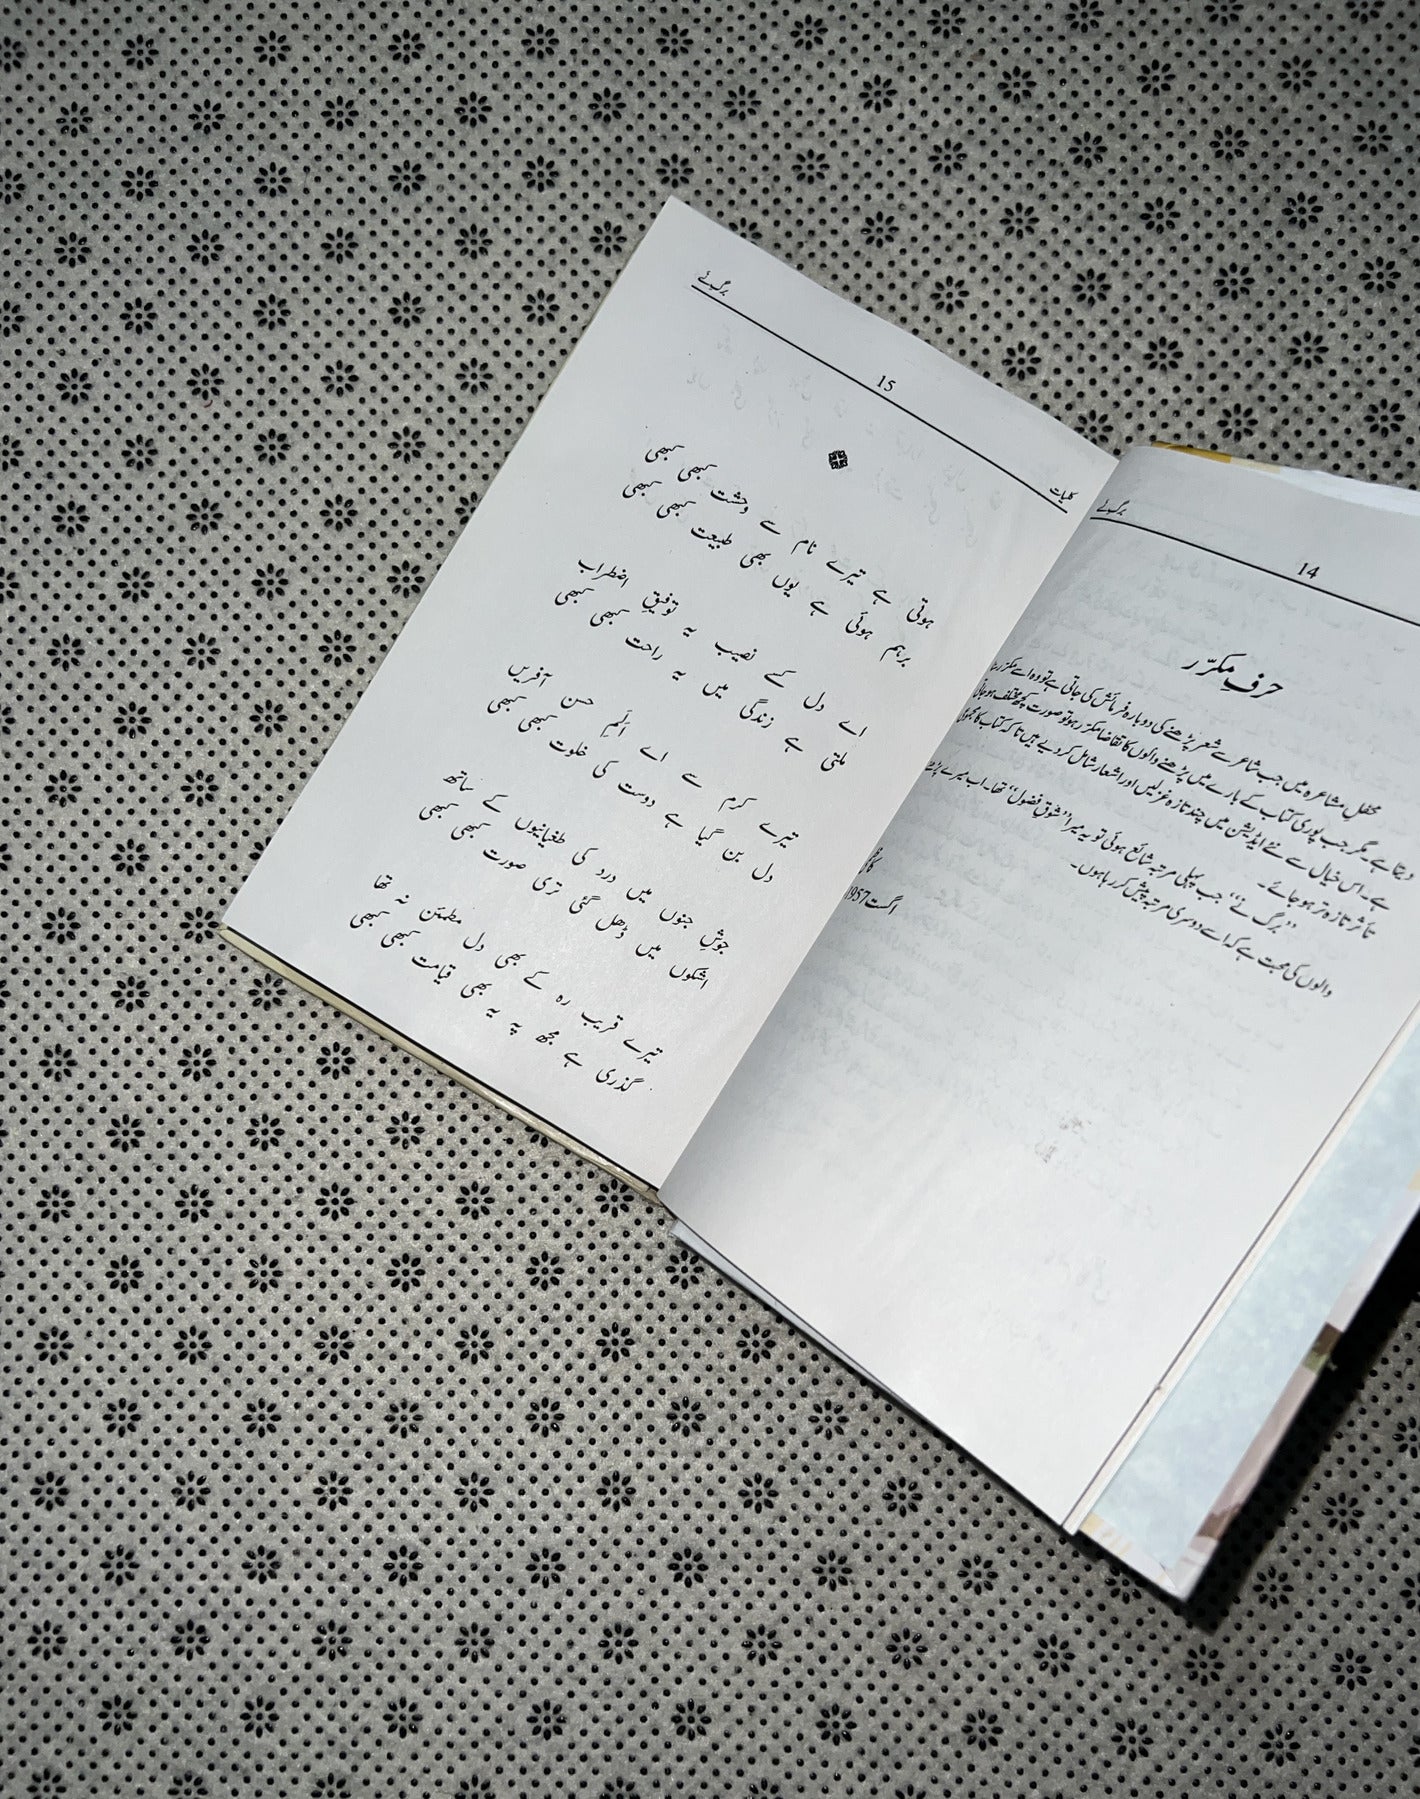 برگِ نَے
14
حرفِ مکرّر
محفلِ مشاعرہ میں جب شاعر سے شعر پڑھنے کی دوبارہ فرمائش کی جاتی ہے تو وہ اسے مکرّر
دیتا ہے۔ مگر جب پوری کتاب کے بارے میں پڑھنے والوں کا تقاضا مکرّر ہو تو صورت کچھ مختلف ہو جاتی
ہے۔ اس خیال سے نئے ایڈیشن میں چند تازہ غزلیں اور اشعار شامل کر دیے ہیں تاکہ کتاب کا مجموعی
تاثر تازہ تر ہو جائے۔
”برگِ نَے“ جب پہلی مرتبہ شائع ہوئی تو یہ میرا ”شوقِ فضول“ تھا۔ اب میرے
والوں کی محبت ہے کہ اسے دوسری مرتبہ پیش کر رہا ہوں۔
اگست 1957
کلیات
15
برگِ نَے
ہوتی ہے تیرے نام سے وحشت کبھی کبھی
برہم ہوئی ہے یوں بھی طبیعت کبھی کبھی
اے دل کسے نصیب یہ توفیقِ اضطراب
ملتی ہے زندگی میں یہ راحت کبھی کبھی
تیرے کرم سے اے اَلَمِ حسن آفریں
دل بن گیا ہے دوست کی خلوت کبھی کبھی
جوشِ جنوں میں درد کی طغیانیوں کے ساتھ
اشکوں میں ڈھل گئی تری صورت کبھی کبھی
تیرے قریب رہ کے بھی دل مطمئن نہ تھا
گذری ہے مجھ پہ یہ بھی قیامت کبھی کبھی